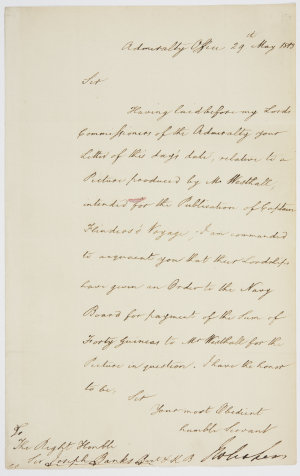 Admiralty Office 29th May 1813
Sir
Having laid before my Lords
Commissioners of the Admiralty your
Letter of this day's date, relative to a
Picture produced by Mr Westhall,
intended for the Publication of Captain
Flinders's Voyage, I am commanded
to acquaint you that their Lordships
have given an Order to the Navy
Board for payment of the Sum of
Forty Guineas to Mr Westhall for the
Picture in question. I have the honor
to be.
Sir
Your most Obedient
humble Servant
The Right Honble
Sir Joseph Banks Bt K B